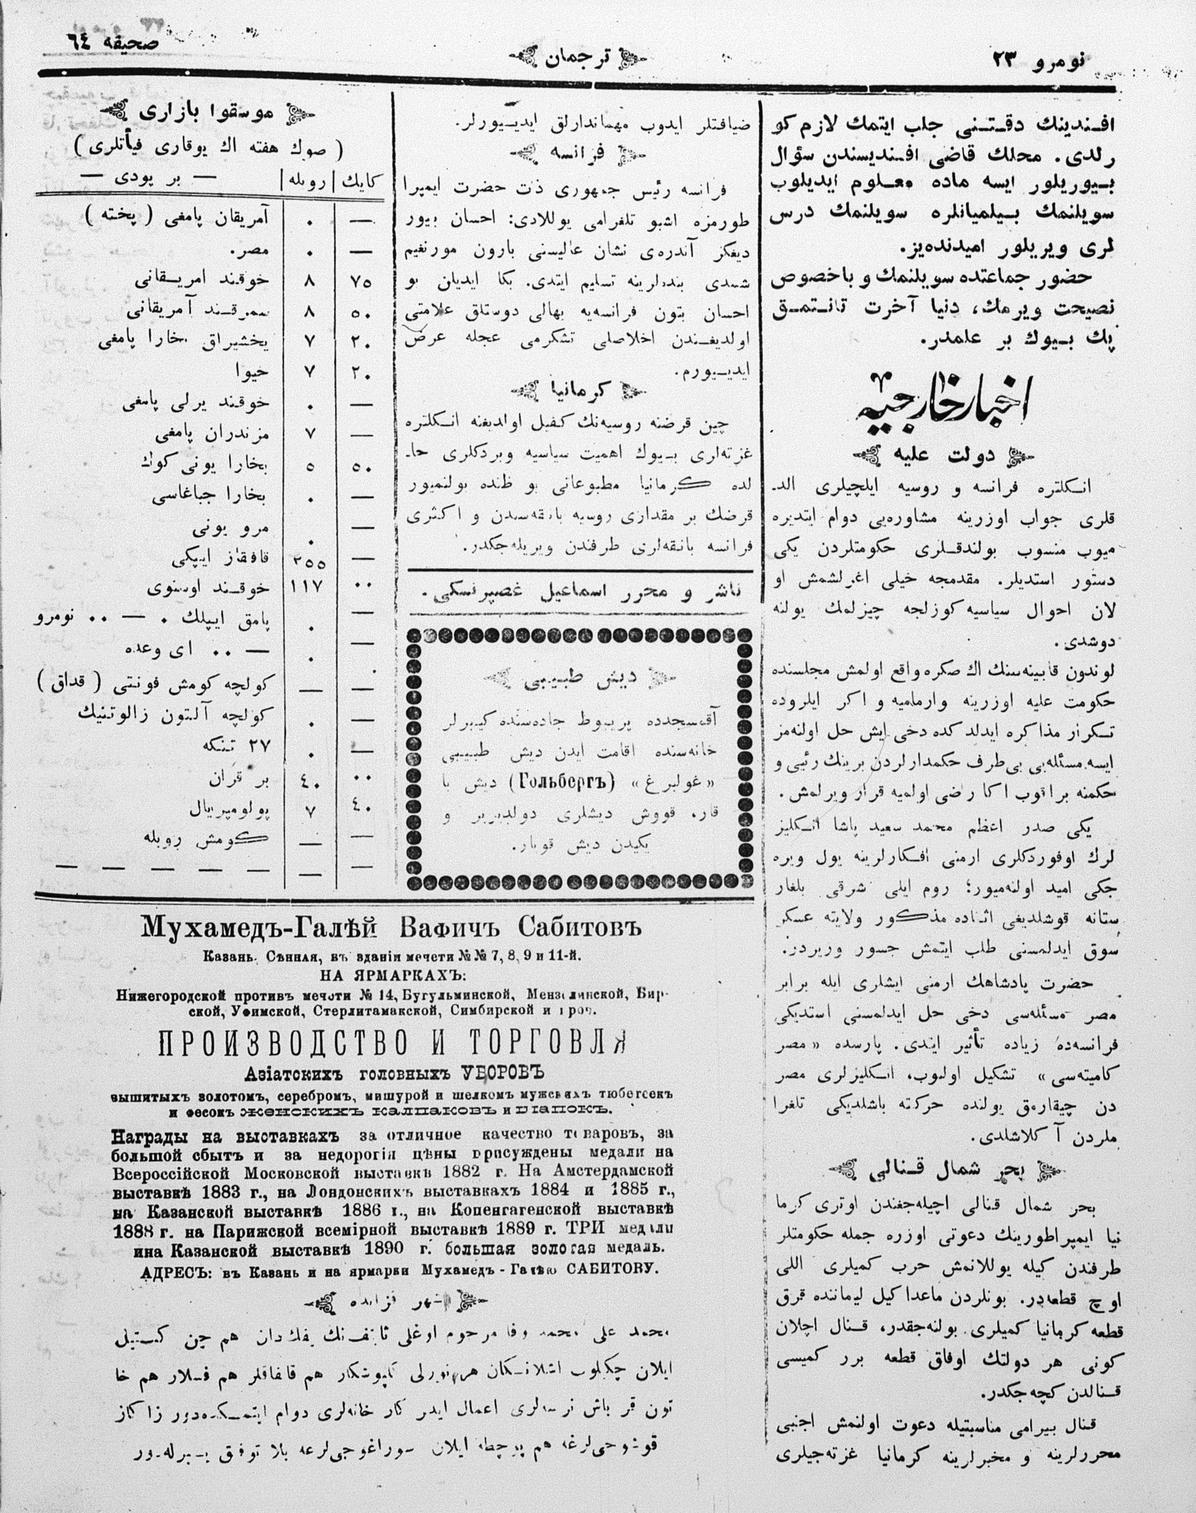 نومرو ٢٣
ترجمان
صحیفه ٦٤
افندینك دقتنی جلب ایتمك لازم كو
رلدی. محلك قاضی افندیسندن سؤال
بیوریلور ایسه ماده معلوم ایدیلوب
سویلنمك بیلمیانلره سویلنمك درس
لری ویریلور امیدنده‌یز.
حضور جماعتده سویلنمك و باخصوص
نصیحت ویرمك، دنیا آخرت تانتمق
پك بیوك بر علمدر.
اخبار خارجیه
دولت علیه
انكلتره فرانسه و روسیه ایلچیلری الد.
قلری جواب اوزرینه مشاوره‌یی دوام ایتدیره
میوب منسوب بولندقلری حكومتلردن یكی
دستور استدیلر. مقدمجه خیلی اغرلشمش او
لان احوال سیاسیه كوزلجه چیزلمك یولنه
دوشدی.
لوندون قابینه‌سنك اك صكره واقع اولمش مجلسنده
حكومت علیه اوزرینه وارمامیه و اكر ایلروده
تكرار مذاكره ایدلدكده دخی ایش حل اولنه‌مز
ایسه مسئله‌یی بی‌طرف حكمدارلردن برینك رئی و
حكمنه براقوب اكا رضی اولمیه قرار ویرلمش.
یكی صدر اعظم محمد سعید پاشا انكلیز
لرك اوفوردكلری ارمنی افكارلرینه یول ویره
جكی امید اولنه‌میور؛ روم ایلی شرقی بلغار
ستانه قوشلدیغی اثناده مذكور ولایته عسكر
سوق ایدلمسنی طلب ایتمش جسور وزیردر.
حضرت پادشاهك ارمنی ایشلری ایله برابر
مصر مسئله‌سی دخی حل ایدلمسنی استدیكی
فرانسه‌ده زیاده تأثیر ایتدی. پارسده «مصر
كامیته‌سی» تشكیل اولنوب، انكلیزلری مصر
دن چیقارمق یولنده حركته باشلدیكی تلغرا
ملردن آكلاشلدی.
بحر شمال قنالی
بحر شمال قنالی اچیله‌جغندن اوتری كرما
نیا ایمپراطورینك دعوتی اوزره جمله حكومتلر
طرفندن كیله یوللانمش حرب كمیلری اللی
اوچ قطعه‌در. بونلردن ماعدا كیل لیماننده قرق
قطعه كرمانیا كمیلری بولنه‌جقدر، قنال اچلان
كونی هر دولتك اوفاق قطعه برر كمیسی
قنالدن كچه‌جكدر.
قنال بیرامی مناسبتیله دعوت اولنمش اجنبی
محررلرینه و مخبرلرینه كرمانیا غزته‌جیلری
ضیافتلر ایدوب مهمماندارلق ایدییورلر.
فرانسه
فرانسه رئیس جمهوری ذت حضرت ایمپرا
طورمزه اشبو تلغرامی یوللادی: احسان بیور
دیغكز آندره‌ی نشان عالیسنی بارون مورنغیم
شمدی بنده‌لرینه تسلیم ایتدی. بكا ایدیان بو
احسان بتون فرانسه‌یه بهالی دوستلق علامتی
اولدیغندن اخلاصلی تشكرمی عجله عرض
ایدییورم.
كرمانیا
چین قرضنه روسیه‌نك كفیل اولدیغنه انكلتره
غزته‌لری بیوك اهمیت سیاسیه ویردكلری حا.
لده كرمانیا مطبوعاتی بو ظنده بولنمیور
قرضك بر مقداری روسیه بانقه‌سندن و اكثری
فرانسه بانقه‌لری طرفندن ویریله‌جكدر.
ناشر و محرر اسماعیل غصپرنسكی.
دیش طبیبی
آقمسجدده پریبوط جاده‌سنده كیبرلر
خانه‌سنده اقامت ایدن دیش طبیبی
«غولبرغ» (Гольбергъ) دیش با
قار. قووش دیشلری دولدیریر و
یكیدن دیش قویار.
موسقوا بازاری
(صوك هفته اك یوقاری فیأتلری)
كاپك | روبله | — بر پودی —
— ٠ آمریقان پامغی (پخته)
— ٠ مصر.
٧٥ ٨ خوقند امریقانی
٥٠ ٨ سمرقند آمریقانی
٢٠ ٧ یخشیراق بخارا پامغی
٢٠ ٧ حیوا
— ٠ خوقند یرلی پامغی
— ٧ مزندران پامغی
٥٠ ٥ بخارا یونی كوك
— ٠ بخارا جباغاسی
— ٠ مرو یونی
— ٣٥٥ قافقاز ایپكی
٠٠ ١١٧ خوقند اوسنوی
— ٠ پامق ایپلك ٠ — ٠٠ نومرو
— ٠ — ٠٠ ای وعده
— — كولچه كومش فونتی (قداق)
— ٠ كولچه آلتون زالوتنیك
— ٠ ٢٧ تنكه
٠٠ ٤٠ بر قران
٤٠ ٧ پولومپریال
— — كومش روبله
— — — — — — —
Мухамедъ-Галѣй Вафичъ Сабитовъ
Казань. Сѣнная, въ зданіи мечети №№ 7, 8, 9 и 11-й.
НА ЯРМАРКАХЪ:
Нижегородской противъ мечети № 14, Бугульминской, Мензелинской, Бир-
ской, Уфимской, Стерлитамакской, Симбирской и проч.
ПРОИЗВОДСТВО И ТОРГОВЛЯ
Азіатскихъ головныхъ УБОРОВЪ
вышитыхъ золотомъ, серебромъ, мишурой и шелкомъ мужскихъ тюбетеекъ
и фесокъ женскихъ калпаковъ и шапокъ.
Награды на выставкахъ за отличное качество товаровъ, за
большой сбытъ и за недорогія цѣны присуждены медали на
Всероссійской Московской выставкѣ 1882 г. На Амстердамской
выставкѣ 1883 г., на Лондонскихъ выставкахъ 1884 и 1885 г.,
на Казанской выставкѣ 1886 г., на Копенгагенской выставкѣ
1888 г. на Парижской всемірной выставкѣ 1889 г. ТРИ медали
и на Казанской выставкѣ 1890 г. большая золотая медаль.
АДРЕСЪ: въ Казани и на ярмарки Мухамедъ-Галѣю САБИТОВУ.
شهر قزانده
محمد علی محمد وفا مرحوم اوغلی ثابتفنك یفكدان هم چن كمستیل
ایلان چكلوب اشلانكان هر تورلی كلپوشكار هم قالفاقلر هم فسلار هم خا
تون قز باش نرسه‌لری اعمال ایدر كار خانه‌لری دوام ایتمكده‌در زاكاز
قوشوجی‌لرغه هم پوچطه ایلان سوراغوجی‌لرغه بلا توقف یبریله‌در